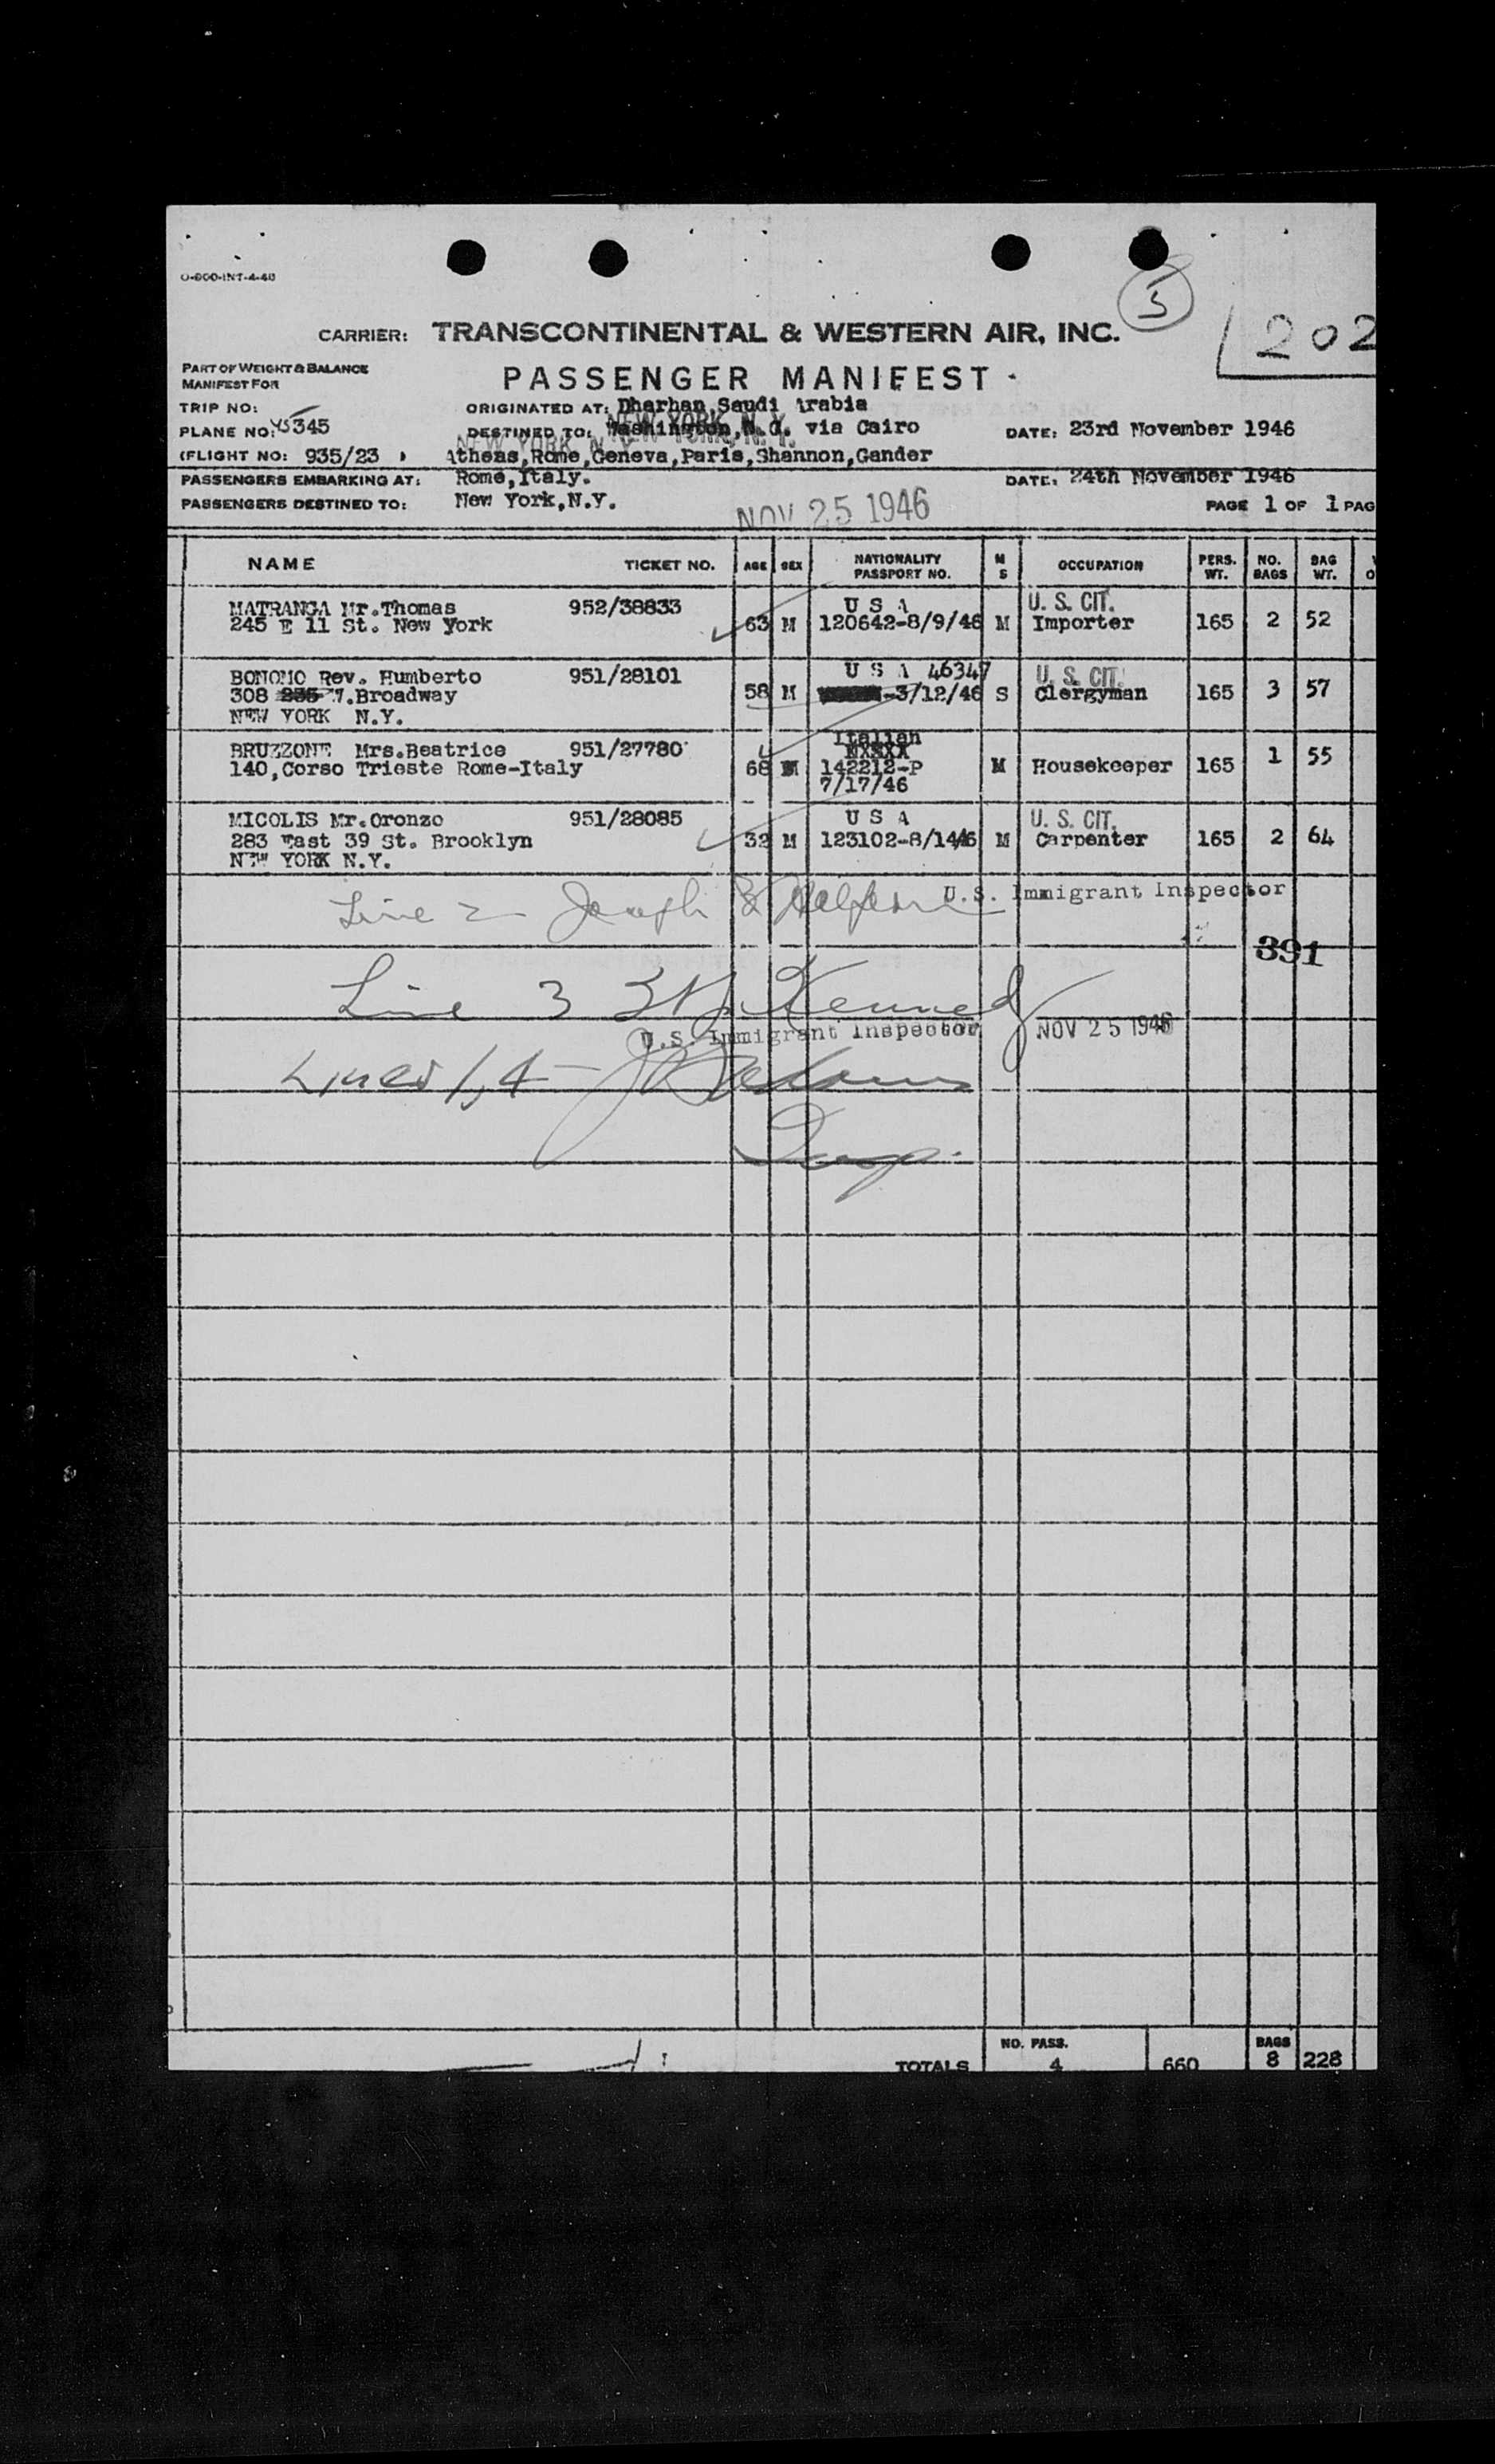 O-800-INT-4-46
5
202
CARRIER: TRANSCONTINENTAL & WESTERN AIR, INC.
PART OF WEIGHT & BALANCE
MANIFEST FOR
PASSENGER MANIFEST
TRIP NO:
ORIGINATED AT: Dharhan,Saudi Arabia
PLANE NO: 45345
DESTINED TO: Washington,D.C. via Cairo
NEW YORK, N.Y.
NEW YORK, N.Y.
DATE: 23rd November 1946
(FLIGHT NO: 935/23 )
Athens,Rome,Geneva,Paris,Shannon,Gander
PASSENGERS EMBARKING AT: Rome,Italy.
DATE: 24th November 1946
PASSENGERS DESTINED TO: New York,N.Y.
NOV 25 1946
PAGE 1 OF 1 PAG
NAME TICKET NO. AGE SEX NATIONALITY PASSPORT NO. M S OCCUPATION PERS. WT. NO. BAGS BAG WT.
MATRANGA Mr.Thomas 952/38833 U S A U. S. CIT.
245 E 11 St. New York 63 M 120642-8/9/46 M Importer 165 2 52
BONOMO Rev. Humberto 951/28101 U S A 46347 U. S. CIT.
308 235 W.Broadway 58 M -3/12/46 S Clergyman 165 3 57
NEW YORK N.Y.
BRUZZONE Mrs.Beatrice 951/27780 Italian
140,Corso Trieste Rome-Italy 68 142212-P M Housekeeper 165 1 55
7/17/46
MICOLIS Mr.Oronzo 951/28085 U S A U. S. CIT.
283 East 39 St. Brooklyn 32 M 123102-8/14/46 M Carpenter 165 2 64
NEW YORK N.Y.
Line 2 Joseph U.S. Immigrant Inspector
391
Line 3 Kennedy
U.S. Immigrant Inspector NOV 25 1946
Lines 1,4
Insp.
NO. PASS. BAGS
TOTALS 4 660 8 228